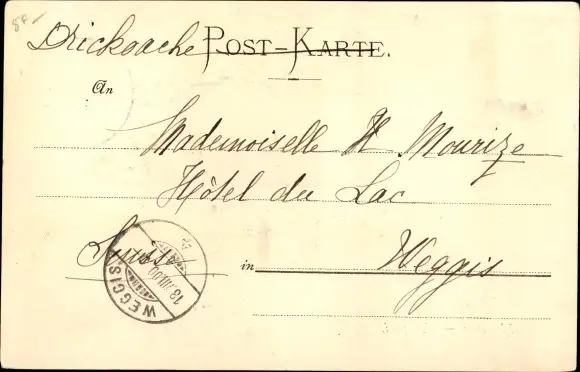 Drucksache POST-KARTE.
An
Mademoiselle H Mourize
Hôtel du Lac
in Weggis
Suisse
WEGGIS
13.VIII.00